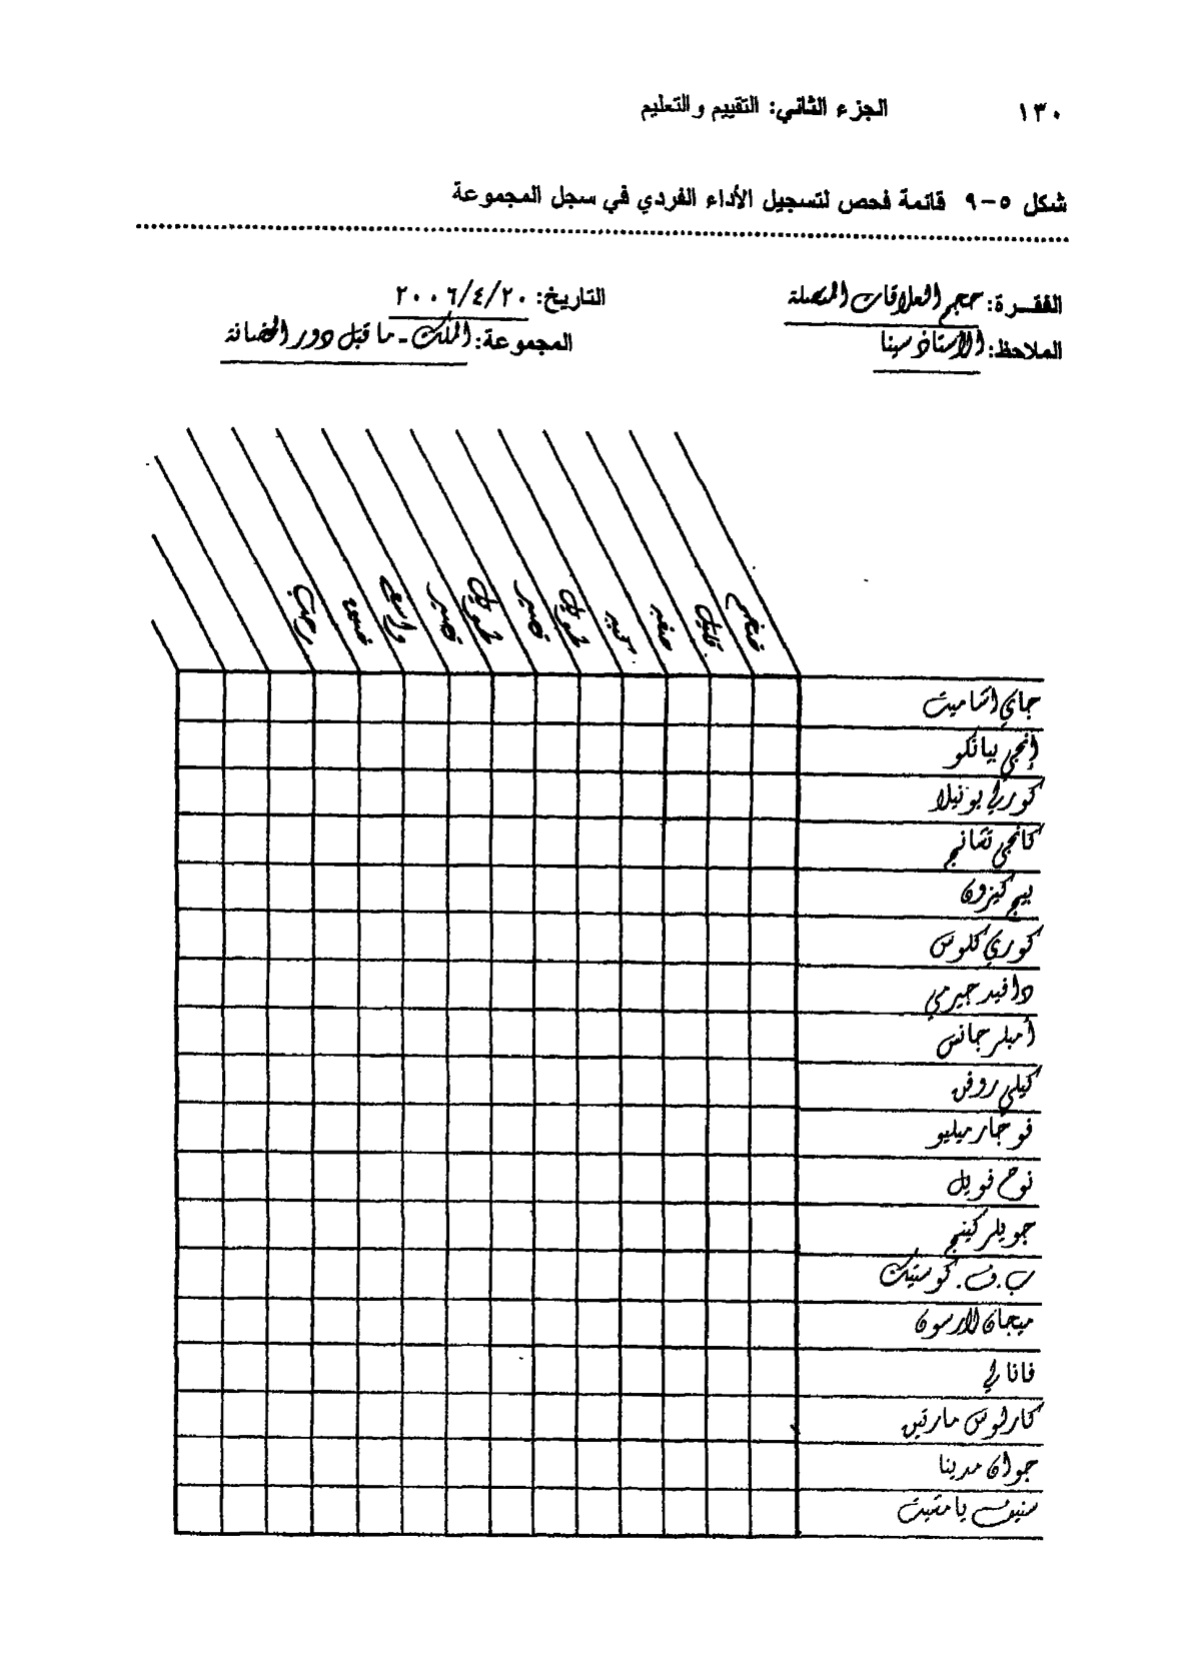 ١٣٠ الجزء الثاني: التقييم والتعليم
شكل ٥-٩ قائمة فحص لتسجيل الأداء الفردي في سجل المجموعة
الفقرة: حجم العلاقات المتصلة التاريخ: ٢٠٠٦/٤/٢٠
الملاحظ: الأستاذ سينا المجموعة: الملك - ما قبل دور الحضانة
ضخم قليل صغير كبير طويل قصير طويل قصير واسع ضيق رحب
جاي اشاميت
إنجي بيانكو
كورلي بونيلا
كانجي تشانج
بيج كيزون
كوري كلوس
دافيد جيرمي
أمبلر جانس
كيلي روفن
فوجارميليو
نوح فويل
جويلر كينج
ب.ف. كوستيك
ميجان لارسون
فانا لي
كارلوس مارتين
جوان مدينا